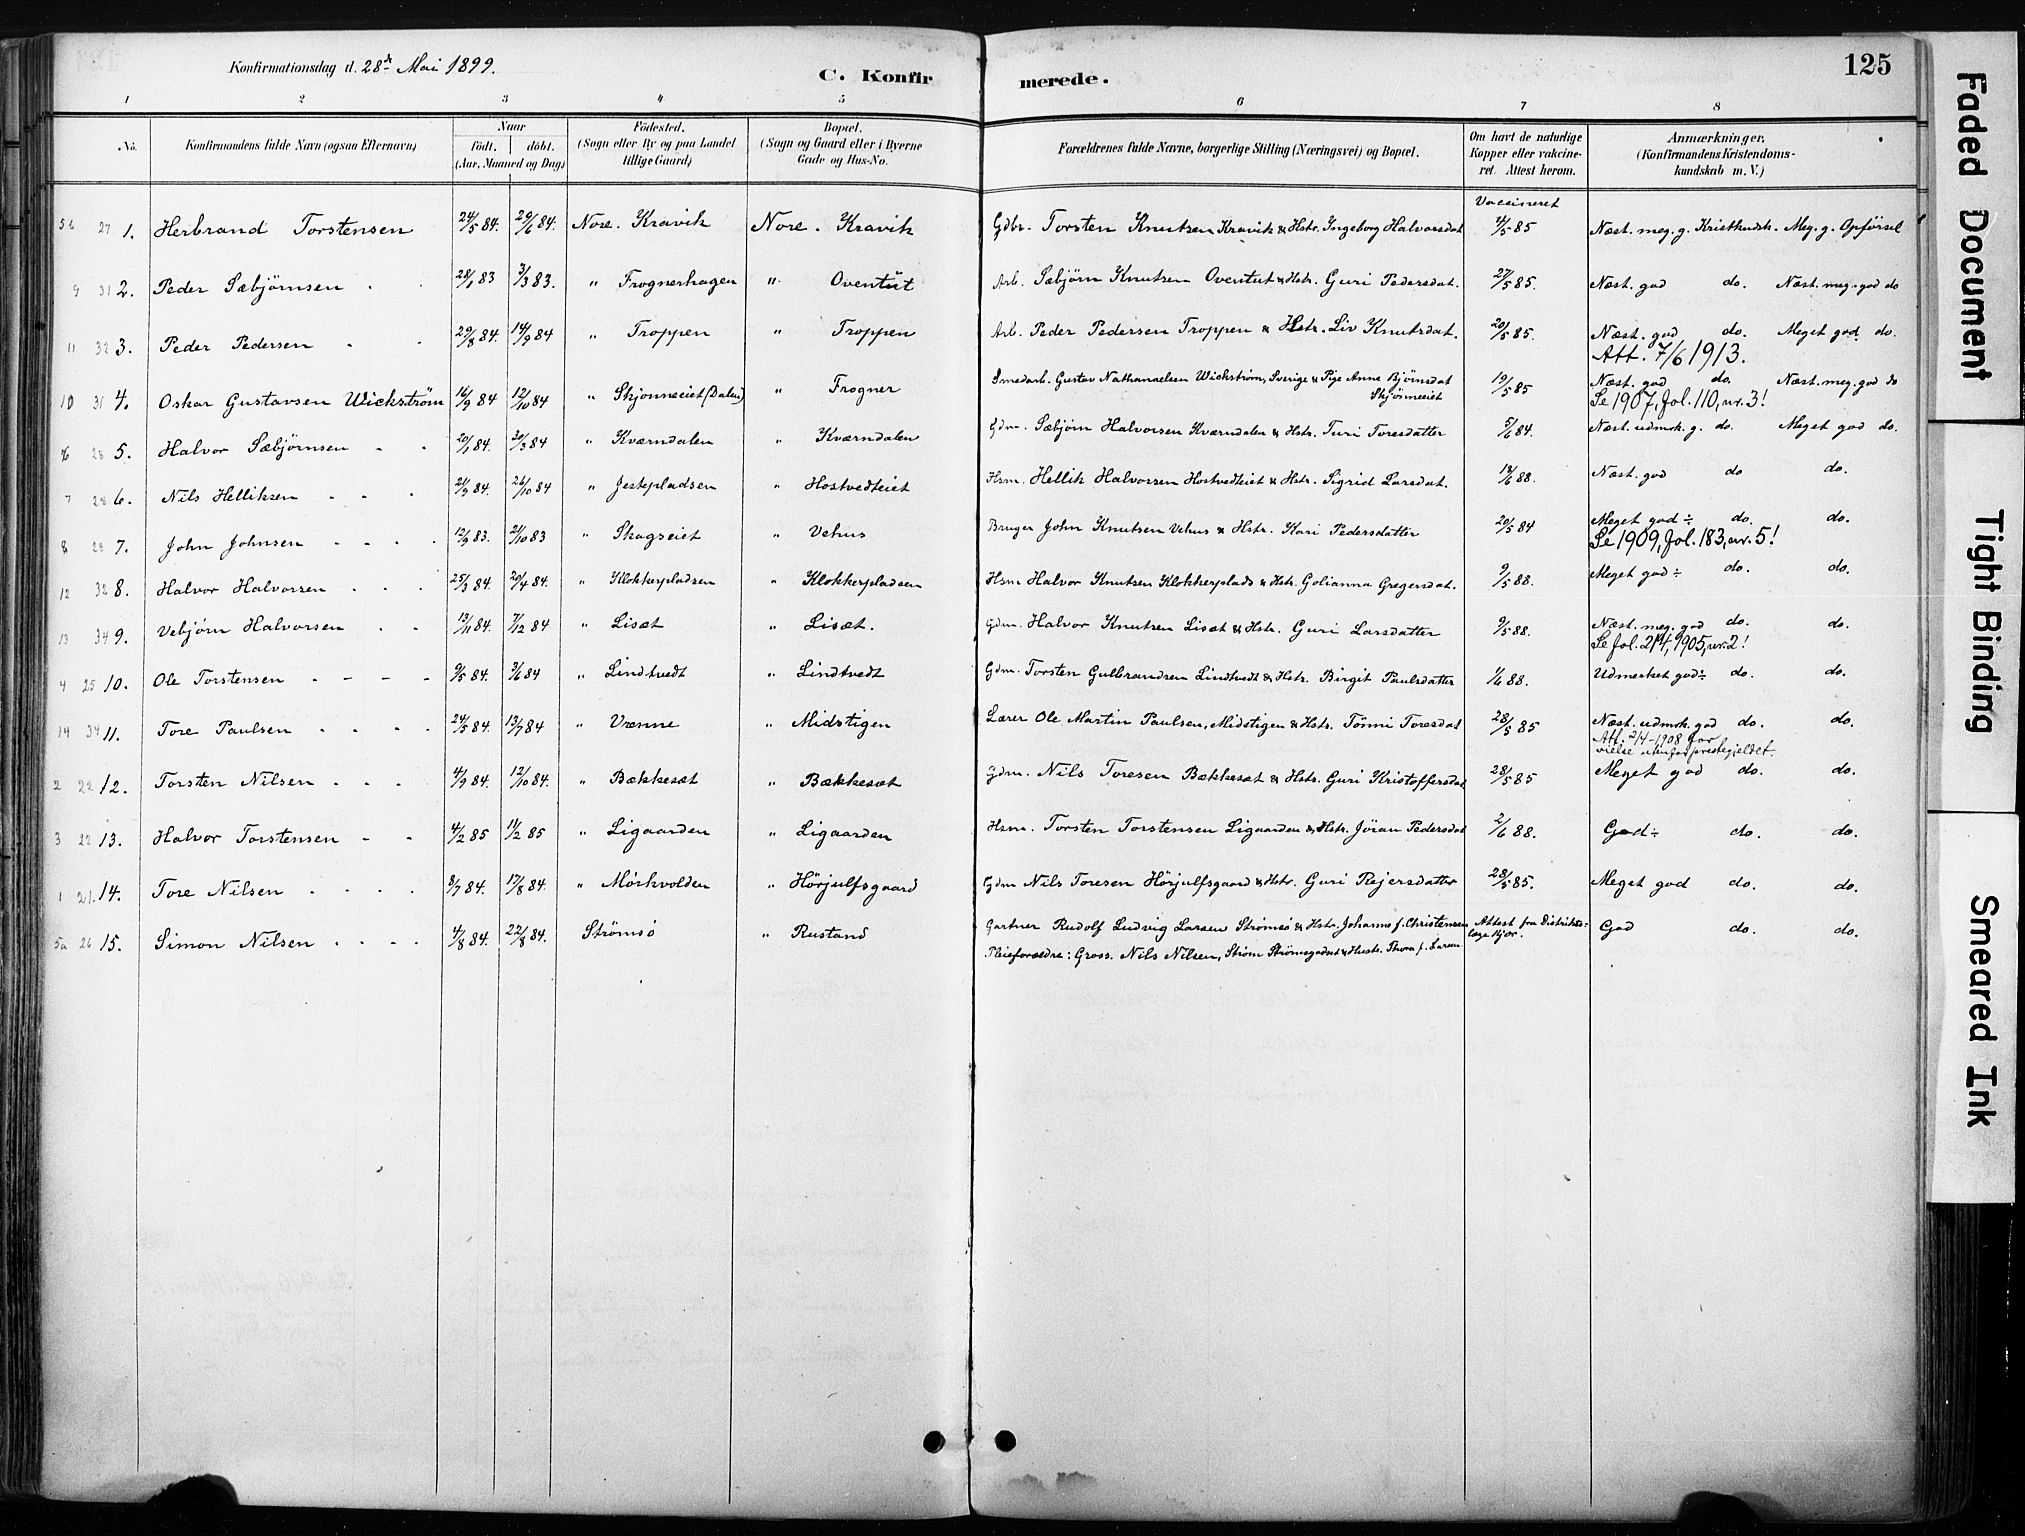 Konfirmationsdag d. 28de Mai 1899.
C. Konfirmerede.
125
1 2 3 4 5 6 7 8
No. Konfirmandens fulde Navn (ogsaa Efternavn)
Naar født. døbt. (Aar, Maaned og Dag)
Fødested. (Sogn eller By og paa Landet tillige Gaard)
Bopæl. (Sogn og Gaard eller i Byerne Gade og Hus-No.
Forældrenes fulde Navne, borgerlige Stilling (Næringsvei) og Bopæl.
Om havt de naturlige Kopper eller vakcineret. Attest herom.
Anmærkninger. (Konfirmandens Kristendomskundskab m. V.)
Vaccineret
27 1. Herbrand Torstensen 24/5 84. 29/6 84. Nore. Kravik Nore. Kravik Gdbr. Torsten Knutsen Kravik & Hstr. Ingeborg Halvorsdat 4/5 85 Næst. meg. g. Kristkndsk. Meg. g. Opførsel
9 31 2. Peder Sæbjørnsen 28/1 83 3/3 83. " Frognerhagen " Oventut Arb. Sæbjørn Knutsen Oventut & Hstr. Guri Pedersdat. 27/5 85. Næst. god do. Næst. meg. god do
11 32 3. Peder Pedersen 29/8 84. 14/9 84 " Troppen " Troppen Arb. Peder Pedersen Troppen & Hstr. Liv Knutsdat. 20/5 85. Næst. god do. Meget god do.
Att. 7/6 1913.
10 31 4. Oskar Gustavsen Wickström 16/9 84 12/10 84 " Skjønneeiet (Dalen) " Frogner Smedarb. Gustav Nathanaelsen Wickstrøm, Sverige & Pige Anne Bjørnsdat Skjønneeiet 19/5 85 Næst. god do. Næst. meg. god do
Se 1907, fol. 110, nr. 3!
28 5. Halvor Sæbjørnsen 20/1 84. 30/3 84 " Kværndalen " Kværndalen Gdm. Sæbjørn Halvorsen Kværndalen & Hstr. Turi Toresdatter 5/6 84. Næst. udmrk. g. do. Meget god do.
7 28 6. Nils Helliksen 21/9 84. 26/10 84 " Jestepladsen " Hostvedteiet Hsm. Hellik Halvorsen Hostvedteiet & Hstr. Sigrid Larsdat. 19/6 88. Næst. god do do.
8 28 7. John Johnsen 12/9 83. 21/10 83 " Skogseiet " Vehus Bruger John Knutsen Vehus & Hstr. Kari Pedersdatter 20/5 84 Meget god ÷ do. do.
Se 1909, fol. 183, nr. 5!
12 32 8. Halvor Halvorsen 25/3 84. 20/4 84. " Klokkerpladsen " Klokkerpladsen Hsm Halvor Knutsen Klokkerplads & Hstr. Golianna Gregersdat. 9/5 88. Meget god ÷ do. do.
13 34 9. Vebjørn Halvorsen 13/11 84. 7/12 84 " Lisæt " Lisæt. Gdm. Halvor Knutsen Lisæt & Hstr. Guri Larsdatter 9/5 88. Næst. meg. god do. do.
Se fol. 214, 1905, nr. 2!
4 25 10. Ole Torstensen 9/5 84. 3/6 84 " Lindtvedt " Lindtvedt Gdm. Torsten Gulbrandsen Lindtvedt & Hstr. Birgit Paulsdatter 1/6 88. Udmerket god ÷ do. do.
14 34 11. Tore Paulsen 24/5 84. 13/7 84 " Vrenne " Midstigen Lærer Ole Martin Paulsen, Midstigen & Hstr. Tønni Toresdat 28/5 85 Næst. udmrk. god do. do.
Att. 2/4-1908 for
vielse utenfor prestegjeldet
2 22 12. Torsten Nilsen 4/9 84. 12/10 84. " Bækkesæt " Bækkesæt Gdm. Nils Toresen Bækkesæt & Hstr. Guri Kristoffersdat 28/5 85 Meget god do. do.
3 22 13. Halvor Torstensen 4/2 85 11/2 85 " Ligaarden " Ligaarden Hsm. Torsten Torstensen Ligaarden & Hstr. Jöran Pedersdat 2/6 88. God ÷ do. do.
1 21 14. Tore Nilsen 8/7 84. 17/8 84. " Mørkvolden " Hörjulfsgaard Gdm Nils Toresen Hörjulfsgaard & Hstr. Guri Rejersdatter 28/5 85. Meget god do. do.
5a 26 15. Simon Nilsen 4/8 84. 22/8 84. Strömsö " Rustand Gartner Rudolf Ludvig Larsen Strømsø & Hstr. Johanne f. Christensen Attest fra Distriktslæge Kjær. God do. do.
Pleieforældre: Gross. Nils Nilsen, Strøm Strømsgodset & Hustr. Thora f. Larsen
Faded Document
Tight Binding
Smeared Ink